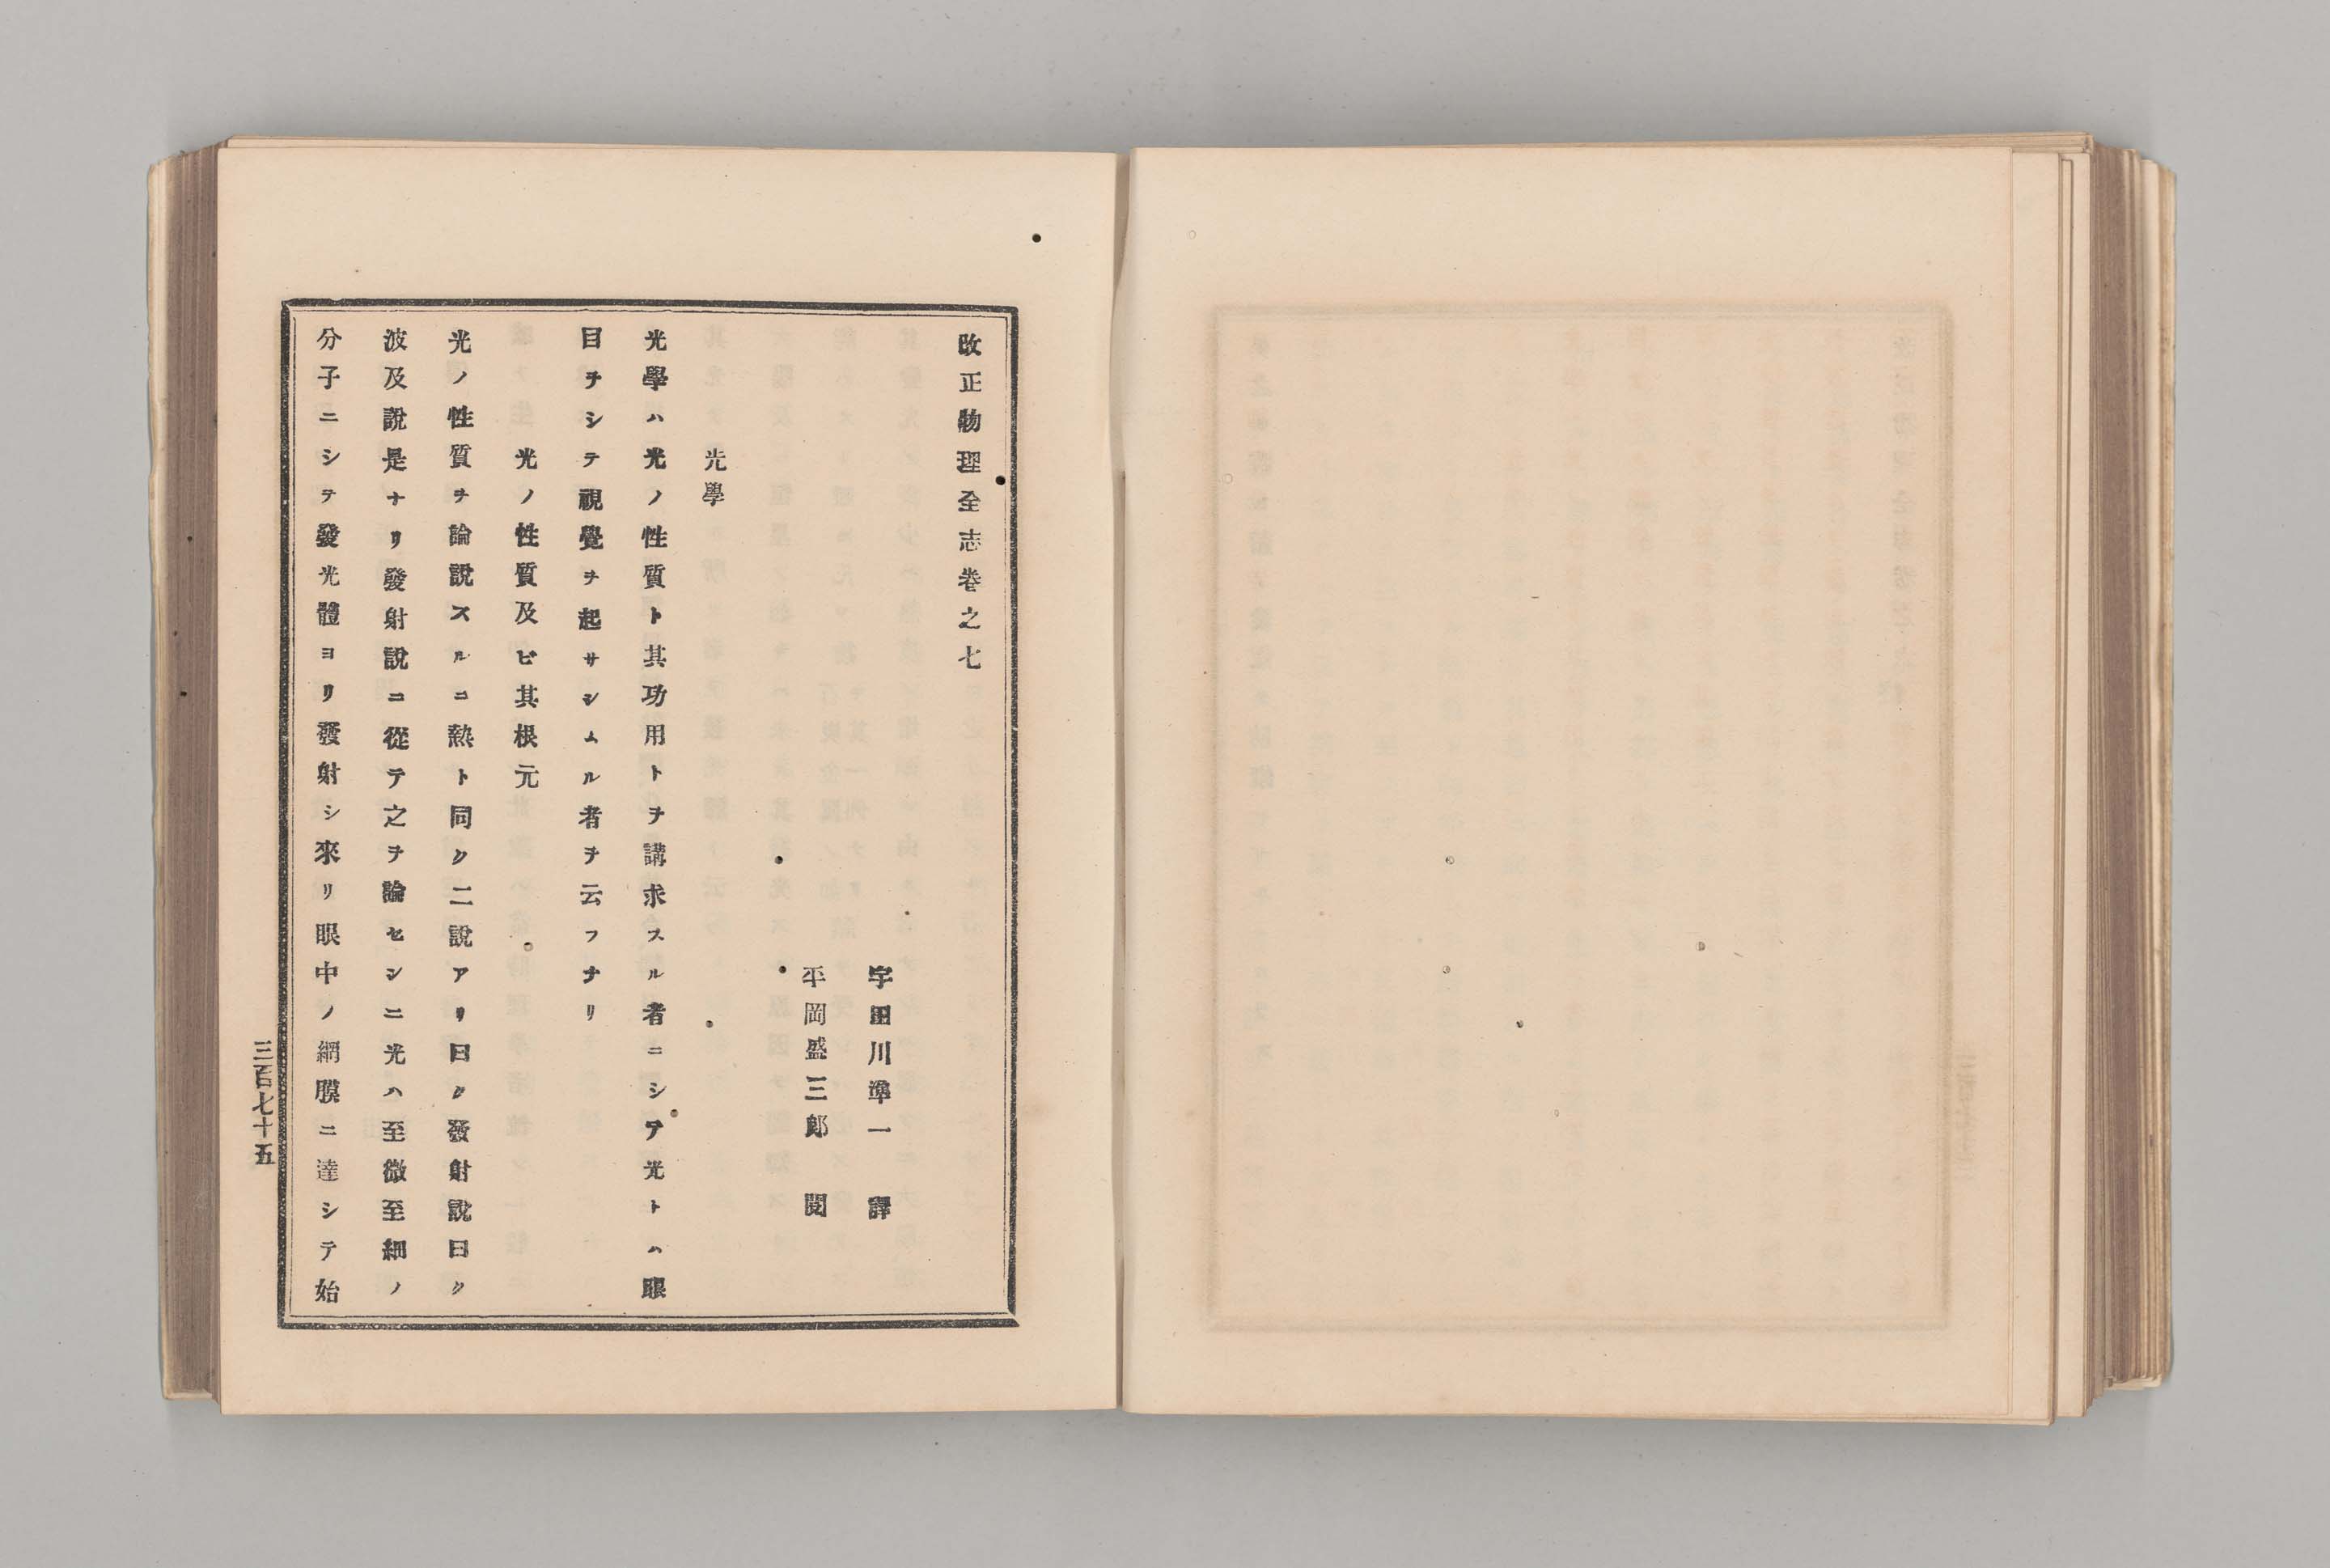 改正物理全志卷之七
宇田川準一　譯
平岡盛三郎　閱
光學
光學ハ光ノ性質ト其功用トヲ講求スル者ニシテ光トハ眼
目ヲシテ視覺ヲ起サシムル者ヲ云フナリ
光ノ性質及ビ其根元
光ノ性質ヲ論說スルニ熱ト同ク二說アリ曰ク發射說曰ク
波及說是ナリ發射說ニ從テ之ヲ論セシニ光ハ至微至細ノ
分子ニシテ發光體ヨリ發射シ來リ眼中ノ網膜ニ達シテ始
三百七十五